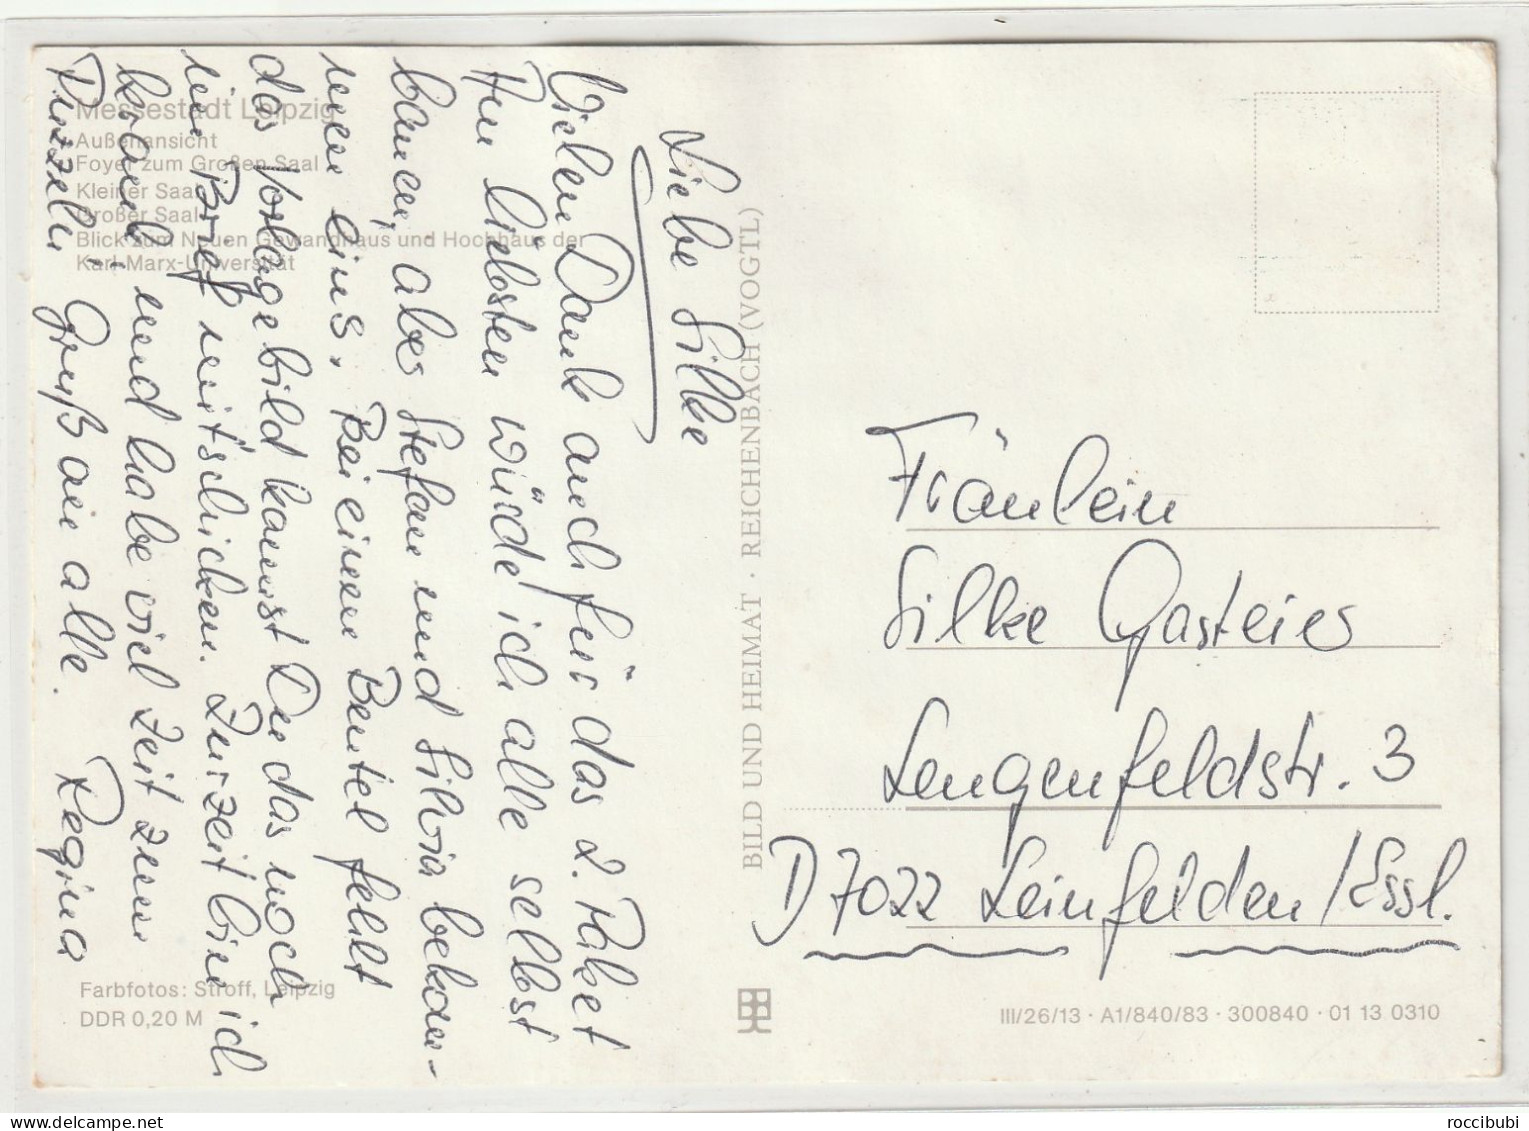 Messestadt Leipzig
Außenansicht
Foyer zum Großen Saal
Kleiner Saal
Großer Saal
Blick zum Neuen Gewandhaus und Hochhaus der
Karl-Marx-Universität
Liebe Silke
Vielen Dank auch für das 2. Paket
Am liebsten würde ich alle selbst
bauen, aber Stefan und Silvia bekom-
men eins. Bei einem Beutel fehlt
das Vorlagebild kannst Du das noch
im Brief mitschicken. Zurzeit bin ich
krank, und habe viel Zeit zum
Puzzeln. Gruß an alle. Regina
Farbfotos: Stroff, Leipzig
DDR 0,20 M
BILD UND HEIMAT · REICHENBACH (VOGTL)
Fräulein
Silke Gasteier
Lengenfeldstr. 3
D 7022 Leinfelden/Essl.
III/26/13 · A1/840/83 · 300840 · 01 13 0310
roccibubi